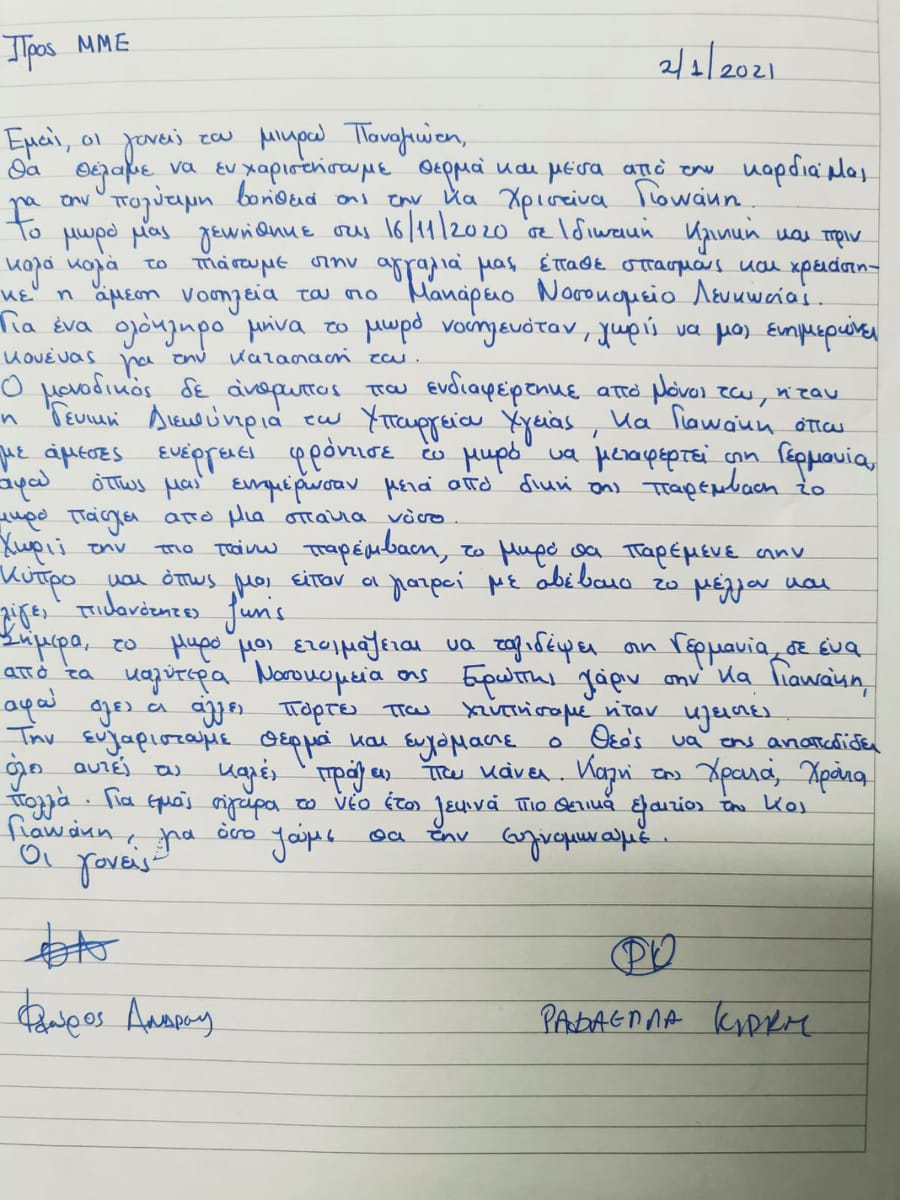 Προς ΜΜΕ
2/1/2021
Εμείς, οι γονείς του μικρού Παναγιώτη,
Θα θέλαμε να ευχαριστήσουμε θερμά και μέσα από την καρδιά μας
για την πολύτιμη βοήθειά της την κα Χριστίνα Γιαννάκη.
Το μωρό μας γεννήθηκε στις 16/11/2020 σε Ιδιωτική Κλινική και πριν
καλά καλά το πιάσουμε στην αγγαλιά μας, έπαθε σπασμούς και χρειάστη-
κε η άμεση νοσηλεία του στο Μακάρειο Νοσοκομείο Λευκωσίας.
Για ένα ολόκληρο μήνα το μωρό νοσηλευόταν, χωρίς να μας ενημερώνει
κανένας για την κατάσταση του.
Ο μοναδικός δε άνθρωπος που ενδιαφέρτηκε από μόνος του, ήταν
η Γενική Διευθύντρια του Υπουργείου Υγείας, κα Γιαννάκη όπου
με άμεσες ενέργειες φρόντισε το μωρό να μεταφερτεί στη Γερμανία,
αφού όπως μας ενημέρωσαν μετά από δική της παρέμβαση το
μωρό πάσχει από μια σπάνια νόσο.
Χωρίς την πιο πάνω παρέμβαση, το μωρό θα παρέμενε στην
Κύπρο και όπως μας είπαν οι γιατροί με αβέβαιο το μέλλον και
λίγες πιθανότητες ζωής
Σήμερα, το μωρό μας ετοιμάζεται να ταξιδέψει στη Γερμανία, σε ένα
από τα καλύτερα Νοσοκομεία της Ερώπης χάριν στην κα Γιαννάκη,
αφού όλες οι άλλες πόρτες που χτυπήσαμε ήταν κλειστές.
Την ευχαριστούμε θερμά και ευχόμαστε ο Θεός να της ανταποδίδει
όλες αυτές τις καλές πράξεις που κάνει. Καλή της Χρονιά, Χρόνια
πολλά. Για εμάς σίγουρα το νέο έτος ξεκινά πιο θετικά εξαιτίας της κας
Γιαννάκη, για όσο ζούμε θα την ευγνομωνούμε.
Οι γονείς
Φλώρος Ανδρου
ΡΑΦΑΕΛΛΑ